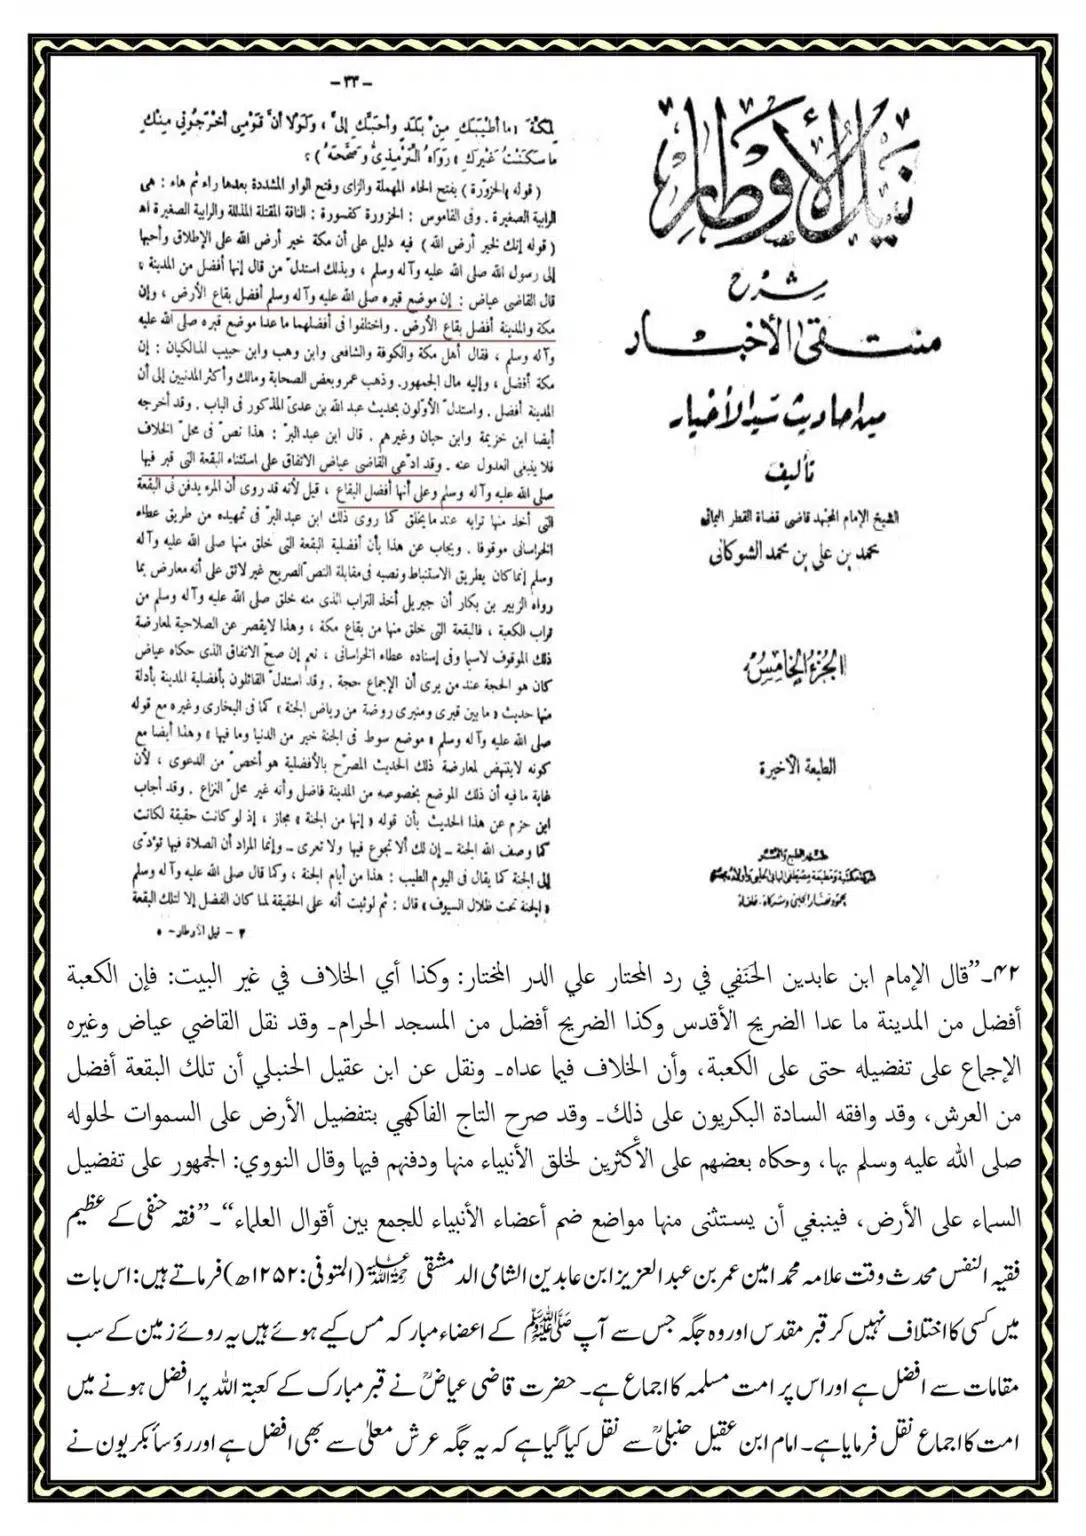 نيل الأوطار
شرح
منتقى الأخبار
من احاديث سيد الأخيار
تأليف
الشيخ الإمام المجتهد قاضى قضاة القطر اليمانى
محمد بن على بن محمد الشوكانى
الجزء الخامس
الطبعة الأخيرة
ملتزم الطبع والنشر
شركة مكتبة ومطبعة مصطفى البابى الحلبى وأولاده بمصر
– ٣٣ –
لمكة « ما أطيبك من بلد وأحبك إلى ، ولولا أن قومى أخرجونى منك
ما سكنت غيرك » رواه الترمذى وصححه ) ؛
( قوله بالحزورة ) بفتح الحاء المهملة والزاى وفتح الواو المشددة بعدها راء ثم هاء : هى
الرابية الصغيرة . وفى القاموس : الحزورة كقسورة : الناقة المقتلة المذللة والرابية الصغيرة اه
( قوله إنك لخير أرض الله ) فيه دليل على أن مكة خير أرض الله على الإطلاق وأحبها
إلى رسول الله صلى الله عليه وآله وسلم ، وبذلك استدلّ من قال إنها أفضل من المدينة ،
قال القاضى عياض : إن موضع قبره صلى الله عليه وآله وسلم أفضل بقاع الأرض ، وإن
مكة والمدينة أفضل بقاع الأرض . واختلفوا فى أفضلهما ما عدا موضع قبره صلى الله عليه
وآله وسلم ، فقال أهل مكة والكوفة والشافعى وابن وهب وابن حبيب المالكيان : إن
مكة أفضل ، وإليه مال الجمهور. وذهب عمر وبعض الصحابة ومالك وأكثر المدنيين إلى أن
المدينة أفضل . واستدلّ الأوّلون بحديث عبد الله بن عدىّ المذكور فى الباب . وقد أخرجه
أيضا ابن خزيمة وابن حبان وغيرهم . قال ابن عبد البرّ : هذا نصّ فى محلّ الخلاف
فلا ينبغى العدول عنه . وقد ادّعى القاضى عياض الاتفاق على استثناء البقعة التى قبر فيها
صلى الله عليه وآله وسلم وعلى أنها أفضل البقاع ، قيل لأنه قد روى أن المرء يدفن فى البقعة
التى أخذ منها ترابه عند ما يخلق كما روى ذلك ابن عبد البرّ فى تمهيده من طريق عطاء
الخراسانى موقوفا . ويجاب عن هذا بأن أفضلية البقعة التى خلق منها صلى الله عليه وآله
وسلم إنما كان بطريق الاستنباط ونصبه فى مقابلة النصّ الصريح غير لائق على أنه معارض بما
رواه الزبير بن بكار أن جبريل أخذ التراب الذى منه خلق صلى الله عليه وآله وسلم من
تراب الكعبة ، فالبقعة التى خلق منها من بقاع مكة ، وهذا لا يقصر عن الصلاحية لمعارضة
ذلك الموقوف لاسيما وفى إسناده عطاء الخراسانى ، نعم إن صحّ الاتفاق الذى حكاه عياض
كان هو الحجة عند من يرى أن الإجماع حجة . وقد استدلّ القائلون بأفضلية المدينة بأدلة
منها حديث « ما بين قبرى ومنبرى روضة من رياض الجنة » كما فى البخارى وغيره مع قوله
صلى الله عليه وآله وسلم « موضع سوط فى الجنة خير من الدنيا وما فيها » وهذا أيضا مع
كونه لا ينتهض لمعارضة ذلك الحديث المصرّح بالأفضلية هو أخصّ من الدعوى ، لأن
غاية ما فيه أن ذلك الموضع بخصوصه من المدينة فاضل وأنه غير محلّ النزاع . وقد أجاب
ابن حزم عن هذا الحديث بأن قوله « إنها من الجنة » مجاز ، إذ لو كانت حقيقة لكانت
كما وصف الله الجنة – إن لك ألا تجوع فيها ولا تعرى – وإنما المراد أن الصلاة فيها تؤدّى
إلى الجنة كما يقال فى اليوم الطيب : هذا من أيام الجنة ، وكما قال صلى الله عليه وآله وسلم
« الجنة تحت ظلال السيوف » قال : ثم لو ثبت أنه على الحقيقة لما كان الفضل إلا لتلك البقعة
٣ – نيل الأوطار – ٥
۴۲۔”قال الإمام ابن عابدين الحَنَفي في رد المحتار علي الدر المختار: وكذا أي الخلاف في غير البيت: فإن الكعبة
أفضل من المدينة ما عدا الضريح الأقدس وكذا الضريح أفضل من المسجد الحرام۔ وقد نقل القاضي عياض وغيره
الإجماع على تفضيله حتى على الكعبة، وأن الخلاف فيما عداه۔ ونقل عن ابن عقيل الحنبلي أن تلك البقعة أفضل
من العرش، وقد وافقه السادة البكريون على ذلك۔ وقد صرح التاج الفاكهي بتفضيل الأرض على السموات لحلوله
صلى الله عليه وسلم بها، وحكاه بعضهم على الأكثرين لخلق الأنبياء منها ودفنهم فيها وقال النووي: الجمهور على تفضيل
السماء على الأرض، فينبغي أن يستثنى منها مواضع ضم أعضاء الأنبياء للجمع بين أقوال العلماء“۔”فقہ حنفی کے عظیم
فقیہ النفس محدث وقت علامہ محمد امین عمر بن عبد العزیز ابن عابدین الشامی الدمشقی رحمۃ اللہ علیہ (المتوفی: ۱۲۵۲ھ) فرماتے ہیں: اس بات
میں کسی کا اختلاف نہیں کہ قبر مقدس اور وہ جگہ جس سے آپ ﷺ کے اعضاء مبارکہ مس کیے ہوئے ہیں یہ روئے زمین کے سب
مقامات سے افضل ہے اور اس پر امت مسلمہ کا اجماع ہے۔ حضرت قاضی عیاضؒ نے قبر مبارک کے کعبۃ اللہ پر افضل ہونے میں
امت کا اجماع نقل فرمایا ہے۔ امام ابن عقیل حنبلیؒ سے نقل کیا گیا ہے کہ یہ جگہ عرش معلیٰ سے بھی افضل ہے اور رؤسأ بکریون نے